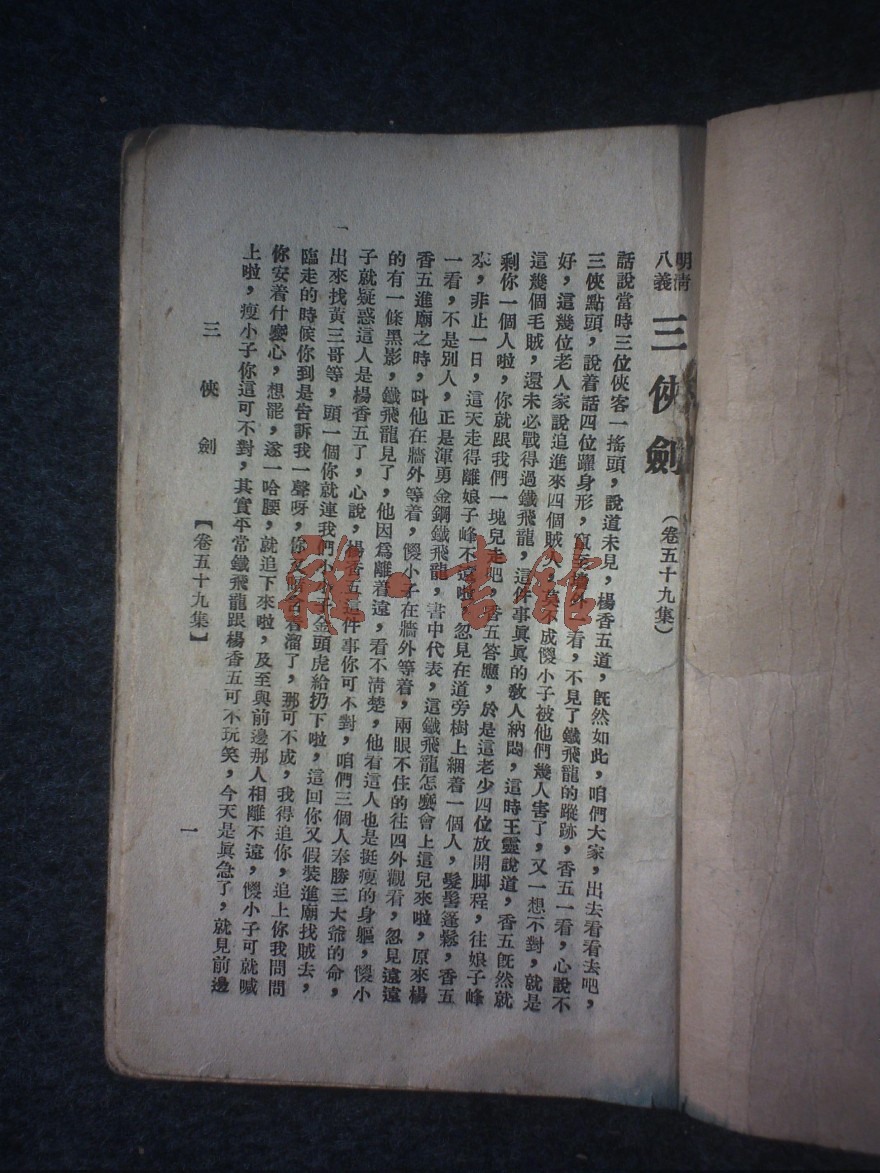 明清
八義
三俠劍
(卷五十九集)
話說當時三位俠客一搖頭，說道未見，楊香五道，旣然如此，咱們大家，出去看看去吧，
三俠點頭，說着話四位躍身形，竄至牆外一看，不見了鐵飛龍的蹤跡，香五一看，心說不
好，這幾位老人家說追進來四個賊人，莫不成儍小子被他們幾人害了，又一想不對，就是
這幾個毛賊，還未必戰得過鐵飛龍，這件事眞眞的敎人納悶，這時王靈說道，香五旣然就
剩你一個人啦，你就跟我們一塊兒走吧，香五答應，於是這老少四位放開脚程，往娘子峰
來，非止一日，這天走得離娘子峰不遠啦，忽見在道旁樹上綑着一個人，髮髻蓬鬆，香五
一看，不是別人，正是渾勇金鋼鐵飛龍，書中代表，這鐵飛龍怎麼會上這兒來啦，原來楊
香五進廟之時，叫他在牆外等着，儍小子在牆外等着，兩眼不住的往四外觀看，忽見遠遠
的有一條黑影，鐵飛龍見了，他因爲離着遠，看不清楚，他看這人也是挺瘦的身軀，儍小
子就疑惑這人是楊香五了，心說，楊香五這件事你可不對，咱們三個人奉勝三大爺的命，
出來找黃三哥等，頭一個你就連我們小小子金頭虎給扔下啦，這回你又假裝進廟找賊去，
臨走的時候你到是告訴我一聲呀，你又暗含着溜了，那可不成，我得追你，追上你我問問
你安着什麼心，想罷，遂一哈腰，就追下來啦，及至與前邊那人相離不遠，儍小子可就喊
上啦，瘦小子你這可不對，其實平常鐵飛龍跟楊香五可不玩笑，今天是眞急了，就見前邊
三俠劍
【卷五十九集】
一
雜·書館